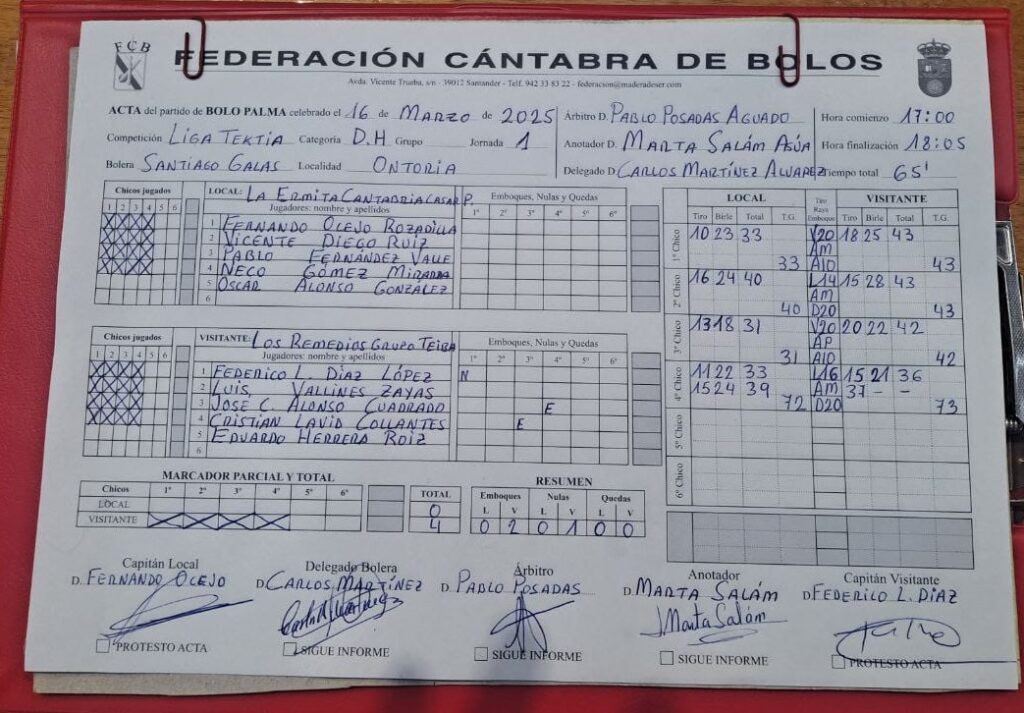 FCB
FEDERACIÓN CÁNTABRA DE BOLOS
Avda. Vicente Trueba, s/n - 39012 Santander - Telf. 942 33 83 22 - federacion@maderadeser.com
ACTA del partido de BOLO PALMA celebrado el 16 de MARZO de 2025 Árbitro D. PABLO POSADAS AGUADO Hora comienzo 17:00
Competición LIGA TEKTIA Categoría D.H Grupo Jornada 1 Anotador D. MARTA SALÁM ASÚA Hora finalización 18:05
Bolera SANTIAGO GALAS Localidad ONTORIA Delegado D. CARLOS MARTÍNEZ ALVAREZ Tiempo total 65'
Chicos jugados LOCAL: LA ERMITA CANTABRIA CASAR P. Emboques, Nulas y Quedas
1 2 3 4 5 6 Jugadores: nombre y apellidos 1º 2º 3º 4º 5º 6º
1 FERNANDO OLEJO ROZADILLA
2 VICENTE DIEGO RUIZ
3 PABLO FERNÁNDEZ VALLE
4 NECO GÓMEZ
5 OSCAR ALONSO GONZÁLEZ
6
Chicos jugados VISITANTE: LOS REMEDIOS GRUPO TEIBA Emboques, Nulas y Quedas
1 2 3 4 5 6 Jugadores: nombre y apellidos 1º 2º 3º 4º 5º 6º
1 FEDERICO L. DIAZ LÓPEZ N
2 LUIS VALLINES ZAYAS
3 JOSE C. ALONSO CUADRADO E
4 CRISTIAN LAVID COLLANTES E
5 EDUARDO HERRERA ROIZ
6
LOCAL VISITANTE
Tiro Birle Total T.G. Tiro Raya Emboque Tiro Birle Total T.G.
1º Chico 10 23 33 V20 18 25 43
AM
33 A10 43
2º Chico 16 24 40 L14 15 28 43
AM
40 D20 43
3º Chico 13 18 31 V20 20 22 42
AP
31 A10 42
4º Chico 11 22 33 L16 15 21 36
15 24 39 AM 37 - -
72 D20 73
5º Chico
6º Chico
MARCADOR PARCIAL Y TOTAL
Chicos 1º 2º 3º 4º 5º 6º TOTAL
LOCAL 0
VISITANTE 4
RESUMEN
Emboques Nulas Quedas
L V L V L V
0 2 0 1 0 0
Capitán Local Delegado Bolera Árbitro Anotador Capitán Visitante
D. FERNANDO OLEJO D. CARLOS MARTÍNEZ D. PABLO POSADAS D. MARTA SALÁM D. FEDERICO L. DIAZ
Marta Salám
PROTESTO ACTA SIGUE INFORME SIGUE INFORME SIGUE INFORME PROTESTO ACTA